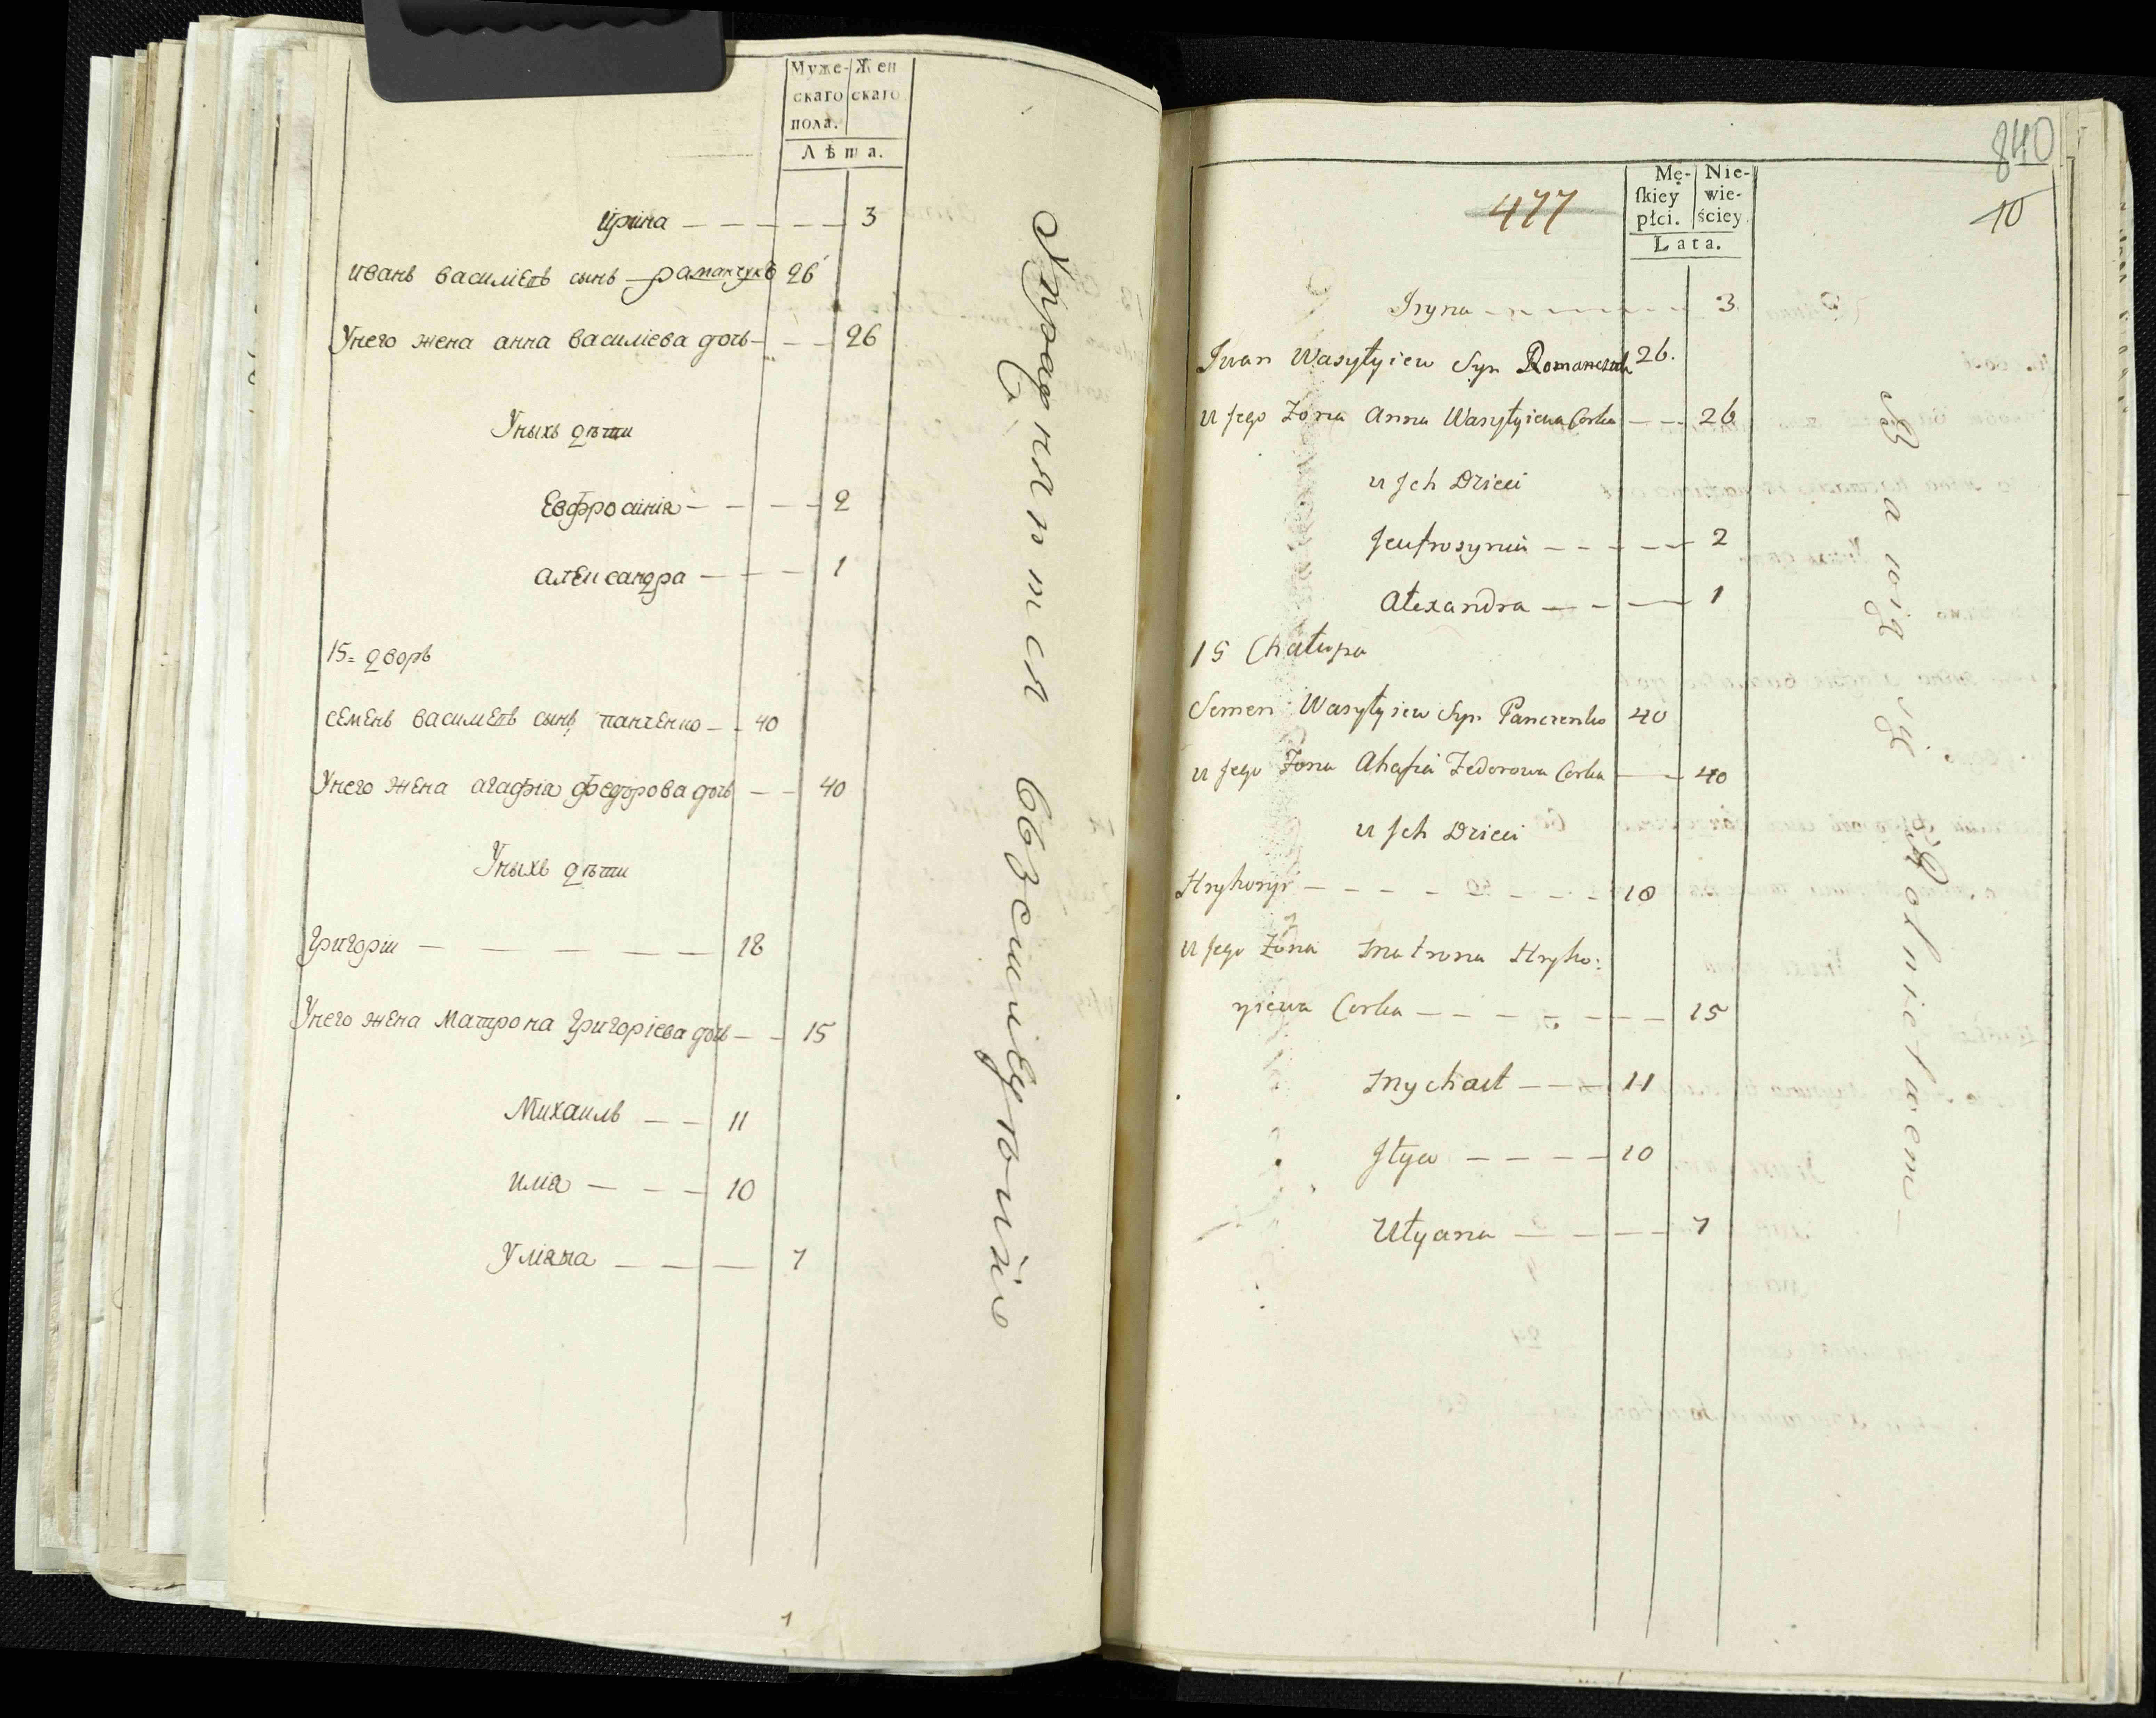 Муже-
скаго
пола.
Жен
скаго
Лѣта.
Ирина — — — — — 3
иванъ василiевъ сынъ раманчукъ 26
Унего жена анна василiева дочь — — — 26
Уныхъ дѣти
Евфросинiя — — — — 2
александра — — — 1
15= дворъ
семенъ василиевъ сынъ панченко — — 40
Унего жена агафiя федорова дочь — — 40
Уныхъ дѣти
Григорiи — — — — — 18
Унего жена Матрона Григорiева дочь — — 15
Михаилъ — — 11
илiя — — — 10
Улiяна — — — 7
Упражняются
1
840
10
477
Mę-
ſkiey
płci.
Nie-
wie-
ściey.
Lata.
Iryna — — — — — 3.
Iwan Wasyłyiew Syn Romanczuk 26.
u Jego Żona Anna Wasyłyiewa Corka — — 26
u Jch Dzieci
Jeufrosynia — — — — 2
Ałexandra — — — 1
15 Chałupa
Semen Wasyłyiew Syn Panczenko 40
u Jego Żona Ahafia Fedorowa Corka — — 40
u Jch Dzieci
Hryhoryi — — — — — 18
u Jego Żona Matrona Hryho:
ryiewa Corka — — — — — 15
Mychaił — — — 11
Jłya — — — — 10
Ułyana — — — — 7
Bawią się Rolnictwem